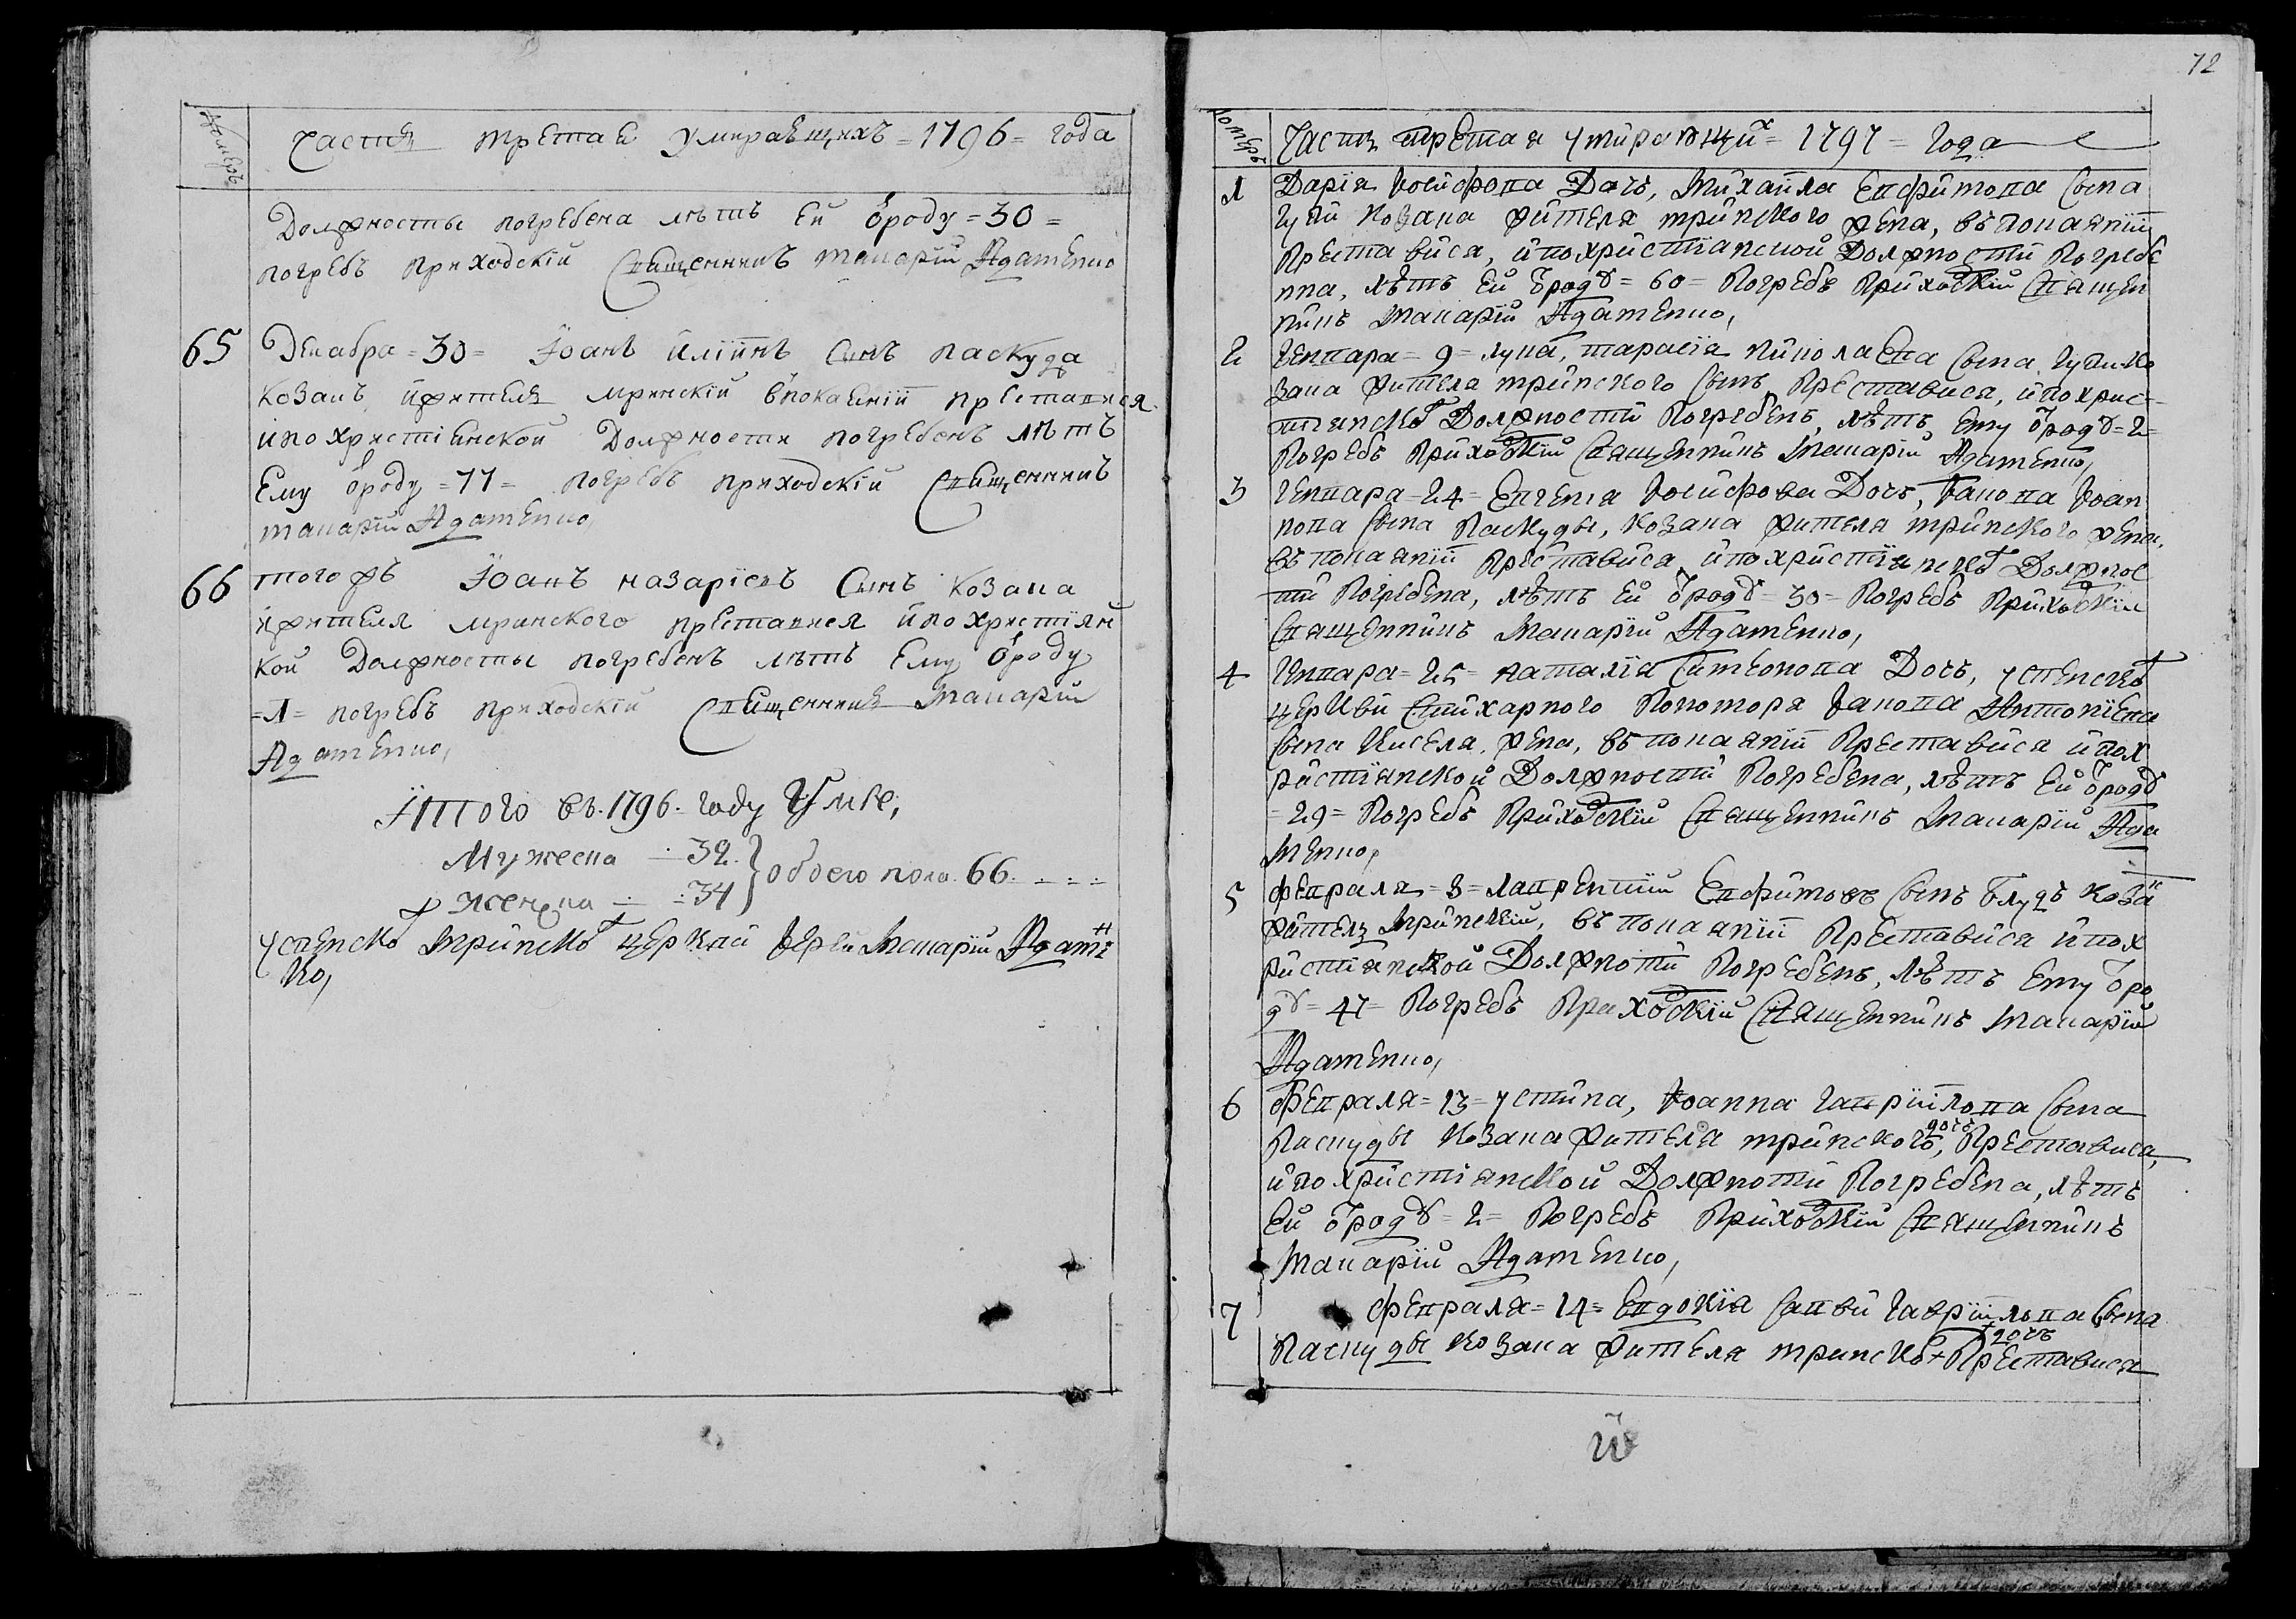 Номеръ
Часть третая умираещихъ = 1796 = года
Должносты погребена лѣтъ Ей ѿроду = 30 =
погребъ приходскій Священникъ Макарій Адаменко
65 Декабра = 30 = Іоанъ иліинъ Синъ паскуда
козакъ ижителя мринскій впокаеніи преставися
ипохристіенской Должности погребенъ лѣтъ
Ему ѿроду = 77 = погребъ приходскій Священникъ
макарій Адаменко,
66 тогожъ Іоанъ назаріевъ Синъ козака
ижителя мринского преставися ипохристіян
кой Должносты погребенъ лѣтъ Ему ѿроду
= 1 = погребъ приходскій Священникъ Макарій
Адаменко,
Итого въ. 1796. году Умре,
Мужеска 32.
женска 34
обоего пола. 66.
успенско мринско церкви Іерей Макарій Адамен
ко,
72
Номеръ
Часть третая умирающих = 1797 = Года
1 Дарія Іосифова Дочь, Михаила Евфимова Сына
Чуби Козака жителя мринского жена, въ покаяніи
Преставися, ипохристіанской Должности Погребе
нна, лѣтъ Ей ѿроду = 60 = Погребъ Приходскій Священ
никъ Макарій Адаменко,
2 Генвара = 9 = лука, тарасія николаева Сына Чуби Ко
зака жителя мринского Сынъ Преставися, ипохрис=
тианско Должности Погребенъ, лѣтъ Ему ѿроду = 2 =
Погребъ Приходскій Священникъ Макарій Адаменко,
3 Генвара = 24 = Евгенія Іосифова Дочь, Іакова Іоан
нова Сына Паскуды, Козака жителя мринского жена,
въ покаяніи Преставися ипохристіянско Должнос
ти Погребена, лѣтъ Ей ѿроду = 30 = Погребъ Приходскій
Священникъ Макарій Адаменко,
4 Генвара = 25 = наталія Симеонова Дочь, успенско
церкви Стихарного Пономоря Іакова Антоніева
Сына Кисела жена, въ покаяніи Преставися ипох
ристіянской Должности Погребена, лѣтъ Ей ѿроду
= 29 = Погребъ Приходскій Священникъ Макарій Ада
менко,
5 Февраля = 3 = лаврентий Евфимовъ Сынъ блудъ Козак
жителъ Мринскій, въ покаяніи Преставися ипох
ристіянской Должноти Погребенъ, Лѣтъ Ему ѿро
ду = 47 = Погребъ Приходскій Священникъ Макарій
Адаменко,
6 Февраля = 13 = устина, Іоанна Гавріилова Сына
Паскуды Козака жителя мринского дочь, Преставися,
ипохристіянской Должноти Погребена, лѣтъ
Ей ѿроду = 2 = Погребъ Приходскій Священникъ
Макарій Адаменко,
7 Февраля = 14 = Евдокія Савви Гавріилова Сына
Паскуды Козака жителя мринско + дочь Преставися